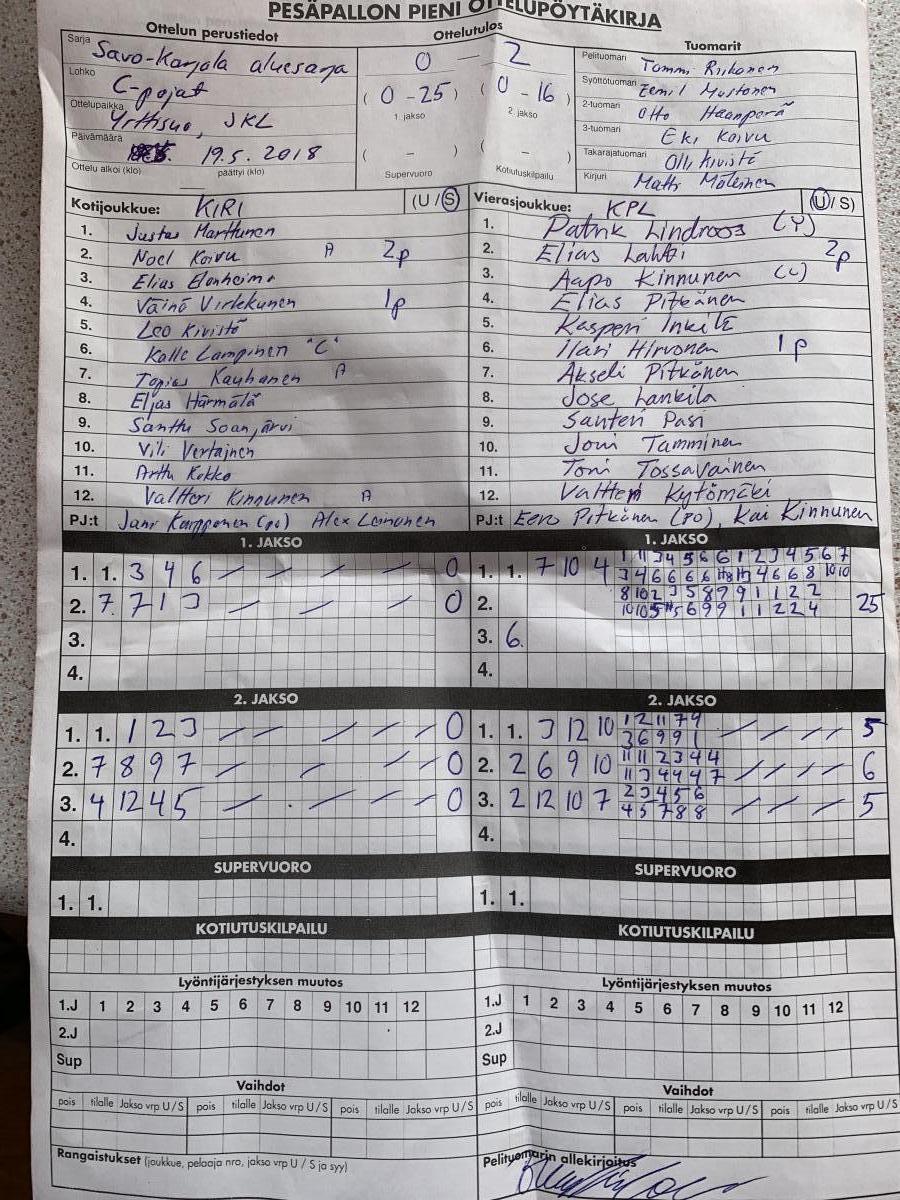 PESÄPALLON PIENI OTTELUPÖYTÄKIRJA
Ottelun perustiedot
Sarja Savo-Karjala aluesarja
Lohko C-pojat
Ottelupaikka Yrttisuo, JKL
Päivämäärä 19.5.2018
Ottelu alkoi (klo) päättyi (klo)
Ottelutulos
0 – 2
(0 - 25) (0 - 16)
1. jakso 2. jakso
( – ) ( – )
Supervuoro Kotiutuskilpailu
Tuomarit
Pelituomari Tommi Riikonen
Syöttötuomari Eemil Mustonen
2-tuomari Otto Haanperä
3-tuomari Eki Koivu
Takarajatuomari Olli Kivistö
Kirjuri Matti
Kotijoukkue: KIRI (U / S)
1. Justus Marttunen
2. Noel Koivu A 2p
3. Elias
4. Väinö 1p
5. Leo Kivistö
6. Kalle Lampinen "C"
7. Topias Kauhanen A
8. Eljas Härmälä
9. Santtu Soanjärvi
10. Vili Vertainen
11. Arttu Kokko
12. Valtteri Kinnunen A
PJ:t Jani Kamponen (po) Alex Leinonen
Vierasjoukkue: KPL (U / S)
1. Patrik Lindroos (Y)
2. Elias Lahti 2p
3. Aapo Kinnunen (C)
4. Elias Pitkänen
5. Kasperi Inkilä
6. Ilari Hirvonen 1p
7. Akseli Pitkänen
8. Jose Lankila
9. Santeri Pasi
10. Joni Tamminen
11. Toni Tossavainen
12. Valtteri Kytömäki
PJ:t Eero Pitkänen (PO), Kai Kinnunen
1. JAKSO
1. 1. 3 4 6 / / / / 0
2. 7 7 1 3 / / / 0
3.
4.
1. JAKSO
1. 1. 7 10 4 1 11 3 4 5 6 6 1 2 3 4 5 6 7
3 4 6 6 6 6 4 6 6 8 10 10
2. 8 10 2 3 5 8 9 9 1 1 2 2 25
10 10 5 5 6 9 9 1 1 2 2 4
3. 6.
4.
2. JAKSO
1. 1. 1 2 3 / / / / 0
2. 7 8 9 7 / / / / 0
3. 4 12 4 5 / / / / 0
4.
2. JAKSO
1. 1. 3 12 10 1 2 11 7 9 / / / / 5
3 6 9 9 1
2. 2 6 9 10 11 11 2 3 4 4 / / / / 6
11 3 4 4 4 7
3. 2 12 10 7 2 3 4 5 6 / / / 5
4 5 7 8 8
4.
SUPERVUORO
1. 1.
SUPERVUORO
1. 1.
KOTIUTUSKILPAILU
KOTIUTUSKILPAILU
Lyöntijärjestyksen muutos
1.J 1 2 3 4 5 6 7 8 9 10 11 12
2.J
Sup
Lyöntijärjestyksen muutos
1.J 1 2 3 4 5 6 7 8 9 10 11 12
2.J
Sup
Vaihdot
pois tilalle Jakso vrp U / S pois tilalle Jakso vrp U / S pois tilalle Jakso vrp U / S
Vaihdot
pois tilalle Jakso vrp U / S pois tilalle Jakso vrp U / S pois tilalle Jakso vrp U / S
Rangaistukset (joukkue, pelaaja nro, jakso vrp U / S ja syy)
Pelituomarin allekirjoitus